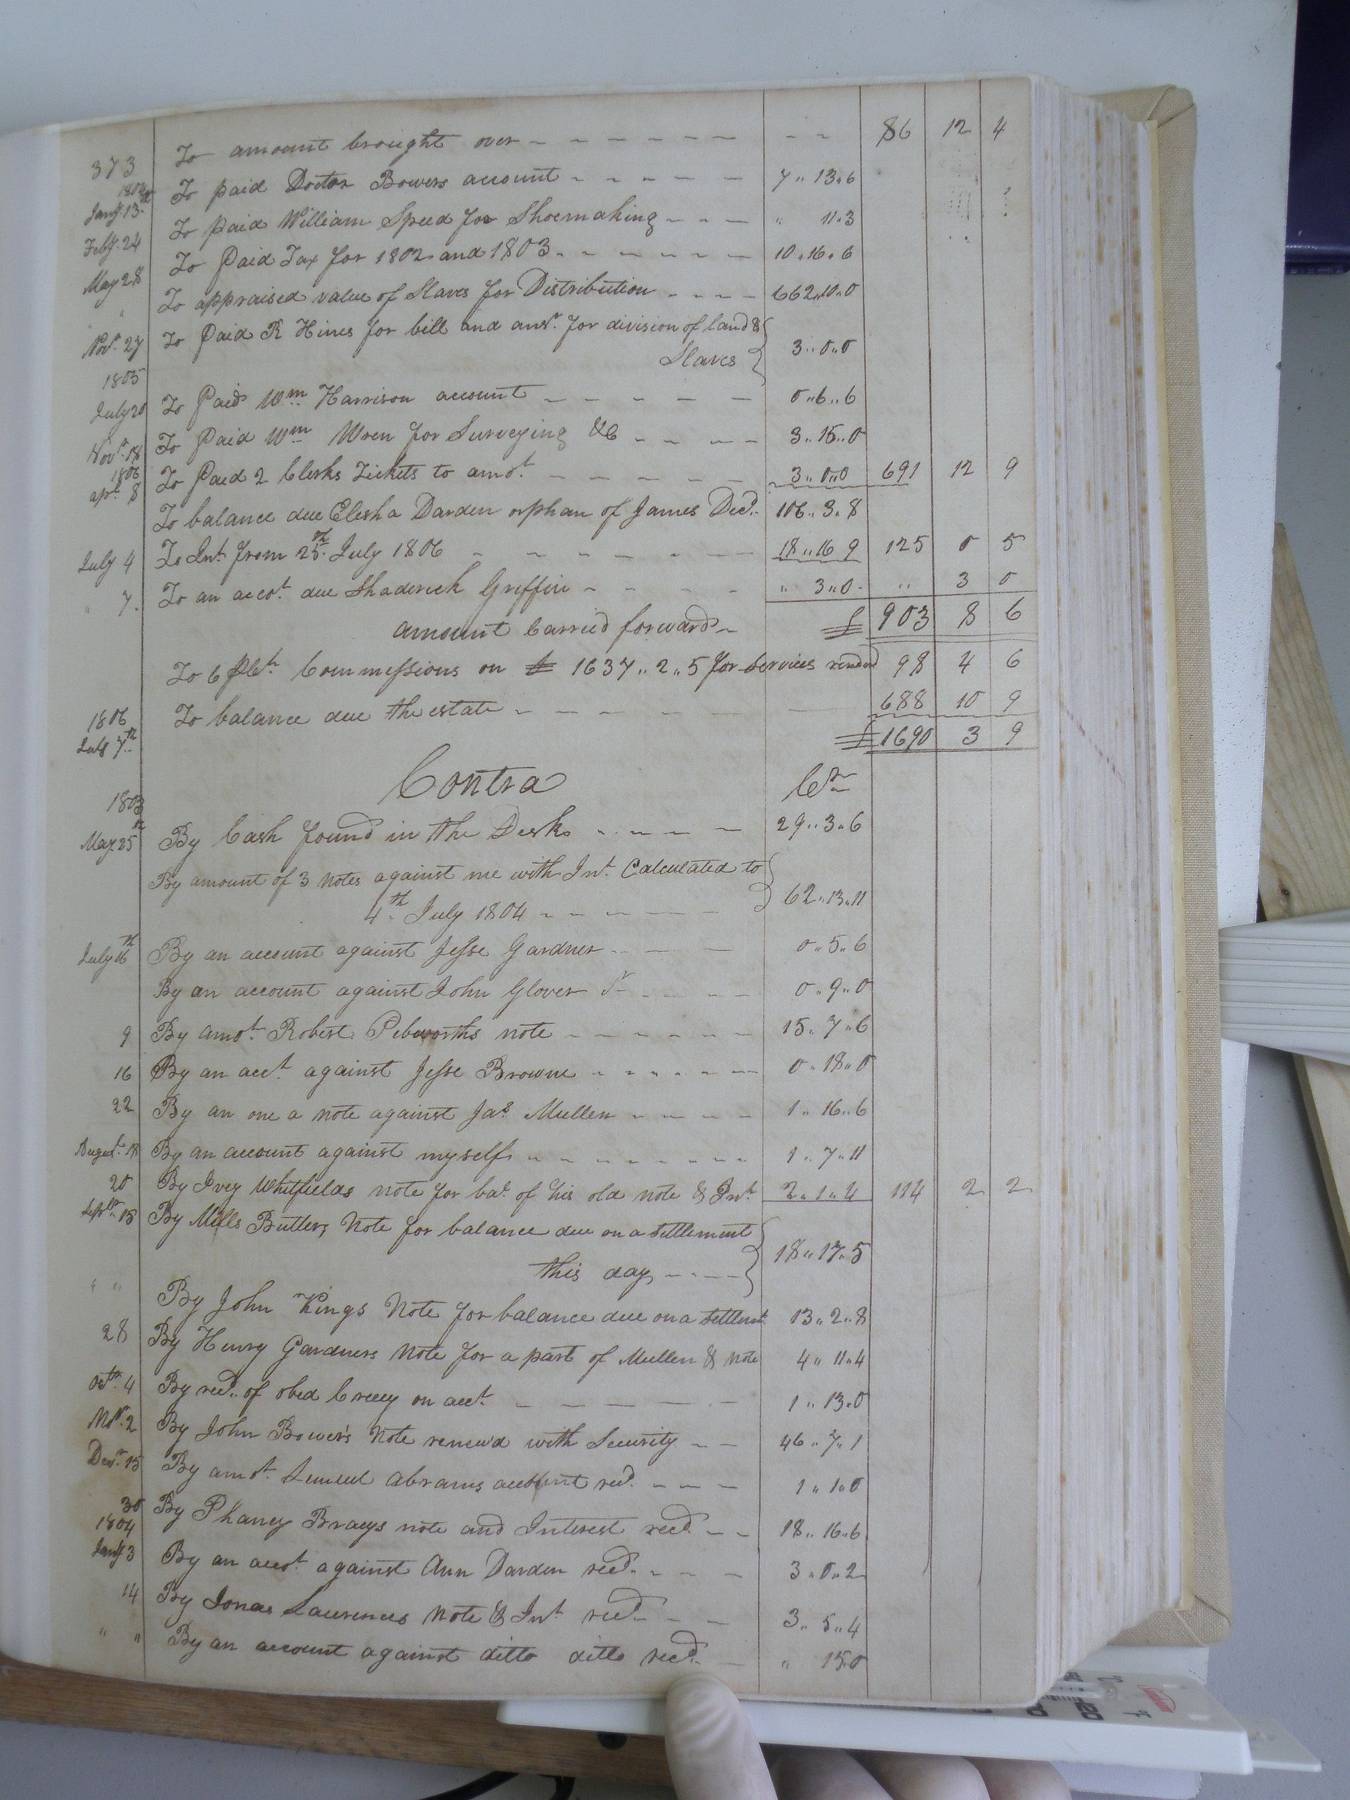 373 To amount brought over - - - - - - - - 86 12 4
1804
Jany. 13th To paid Doctor Bowers account - - - - - 7 " 13 " 6
Feby. 24 To paid William Speed for Shoemaking - - - " 11 " 3
May 28 To Paid Tax for 1802 and 1803 - - - - - - 10 " 16 " 6
" " To appraised value of Slaves for Distribution - - - - 662 " 10 " 0
Novr. 27 To Paid R Hines for bill and answr. for division of land &
Slaves 3 " 0 " 0
1805
July 20 To Paid Wm Harrison account - - - - - 0 " 6 " 6
Novr. 18 To Paid Wm Wren for Surveying &C - - - - 3 " 15 " 0
1806
apl. 8 To Paid 2 Clerks Tickets to amot. - - - - - 3 " 0 " 0 691 12 9
To balance due Elisha Darden orphan of James Decd. - 106 " 3 " 8
July 4 To Int. from 25th July 1806 - - - - - - - 18 " 16 9 125 0 5
" 7. To an accot. due Shaderick Griffin - - - - - " 3 " 0 - " 3 0
Amount Carried forward - £ 903 8 6
To 6 PCt. Commissions on £ 1637 " 2 " 5 for Services rendd 98 4 6
1806
July 7th To balance due the estate - - - - - - - 688 10 9
£ 1690 3 9
Contra Cr
1803
May 25th By Cash found in the Desk - - - - - 29 " 3 " 6
By amount of 3 notes against me with Int. Calculated to
4th July 1804 - - - - - - 62 " 13 " 11
July 16th By an account against Jesse Gardner - - - - 0 " 5 " 6
By an account against John Glover Sr - - - - - 0 " 9 " 0
9 By amot. Robert Pebworths note - - - - - - 15 " 7 " 6
16 By an acct. against Jesse Browne - - - - - - 0 " 18 " 0
22 By an one a note against Jas. Mullen - - - - - 1 " 16 " 6
August 18 By an account against myself - - - - - - - - 1 " 7 " 11
20 By Ivey Whitfields note for bal. of his old note & Int. 2 " 1 " 4 114 2 2
Septr. 18 By Mills Butlers Note for balance due on a Settlement
this day - - - - 18 " 17 " 5
" " By John Kings Note for balance due on a Settlemt. 13 " 2 " 8
28 By Henry Gardners Note for a part of Mullen & note 4 " 11 " 4
Octr. 4 By recd. of obed Creecy on acct. - - - - - - 1 " 13 " 0
Novr. 2 By John Bowers Note renew'd with Security - - 46 " 7 " 1
Decr. 15 By amot. Lemuel Abrams account recd. - - - 1 " 1 " 0
30 By Phaney Braceys note and Interest recd. - - 18 " 16 " 6
1804
Jany. 3 By an accot. against Ann Darden recd. - - - - 3 " 0 " 2
14 By Jonas Laurences Note & Int. recd. - - - 3 " 5 " 4
" " By an account against ditto ditto recd. - " 15 " 0